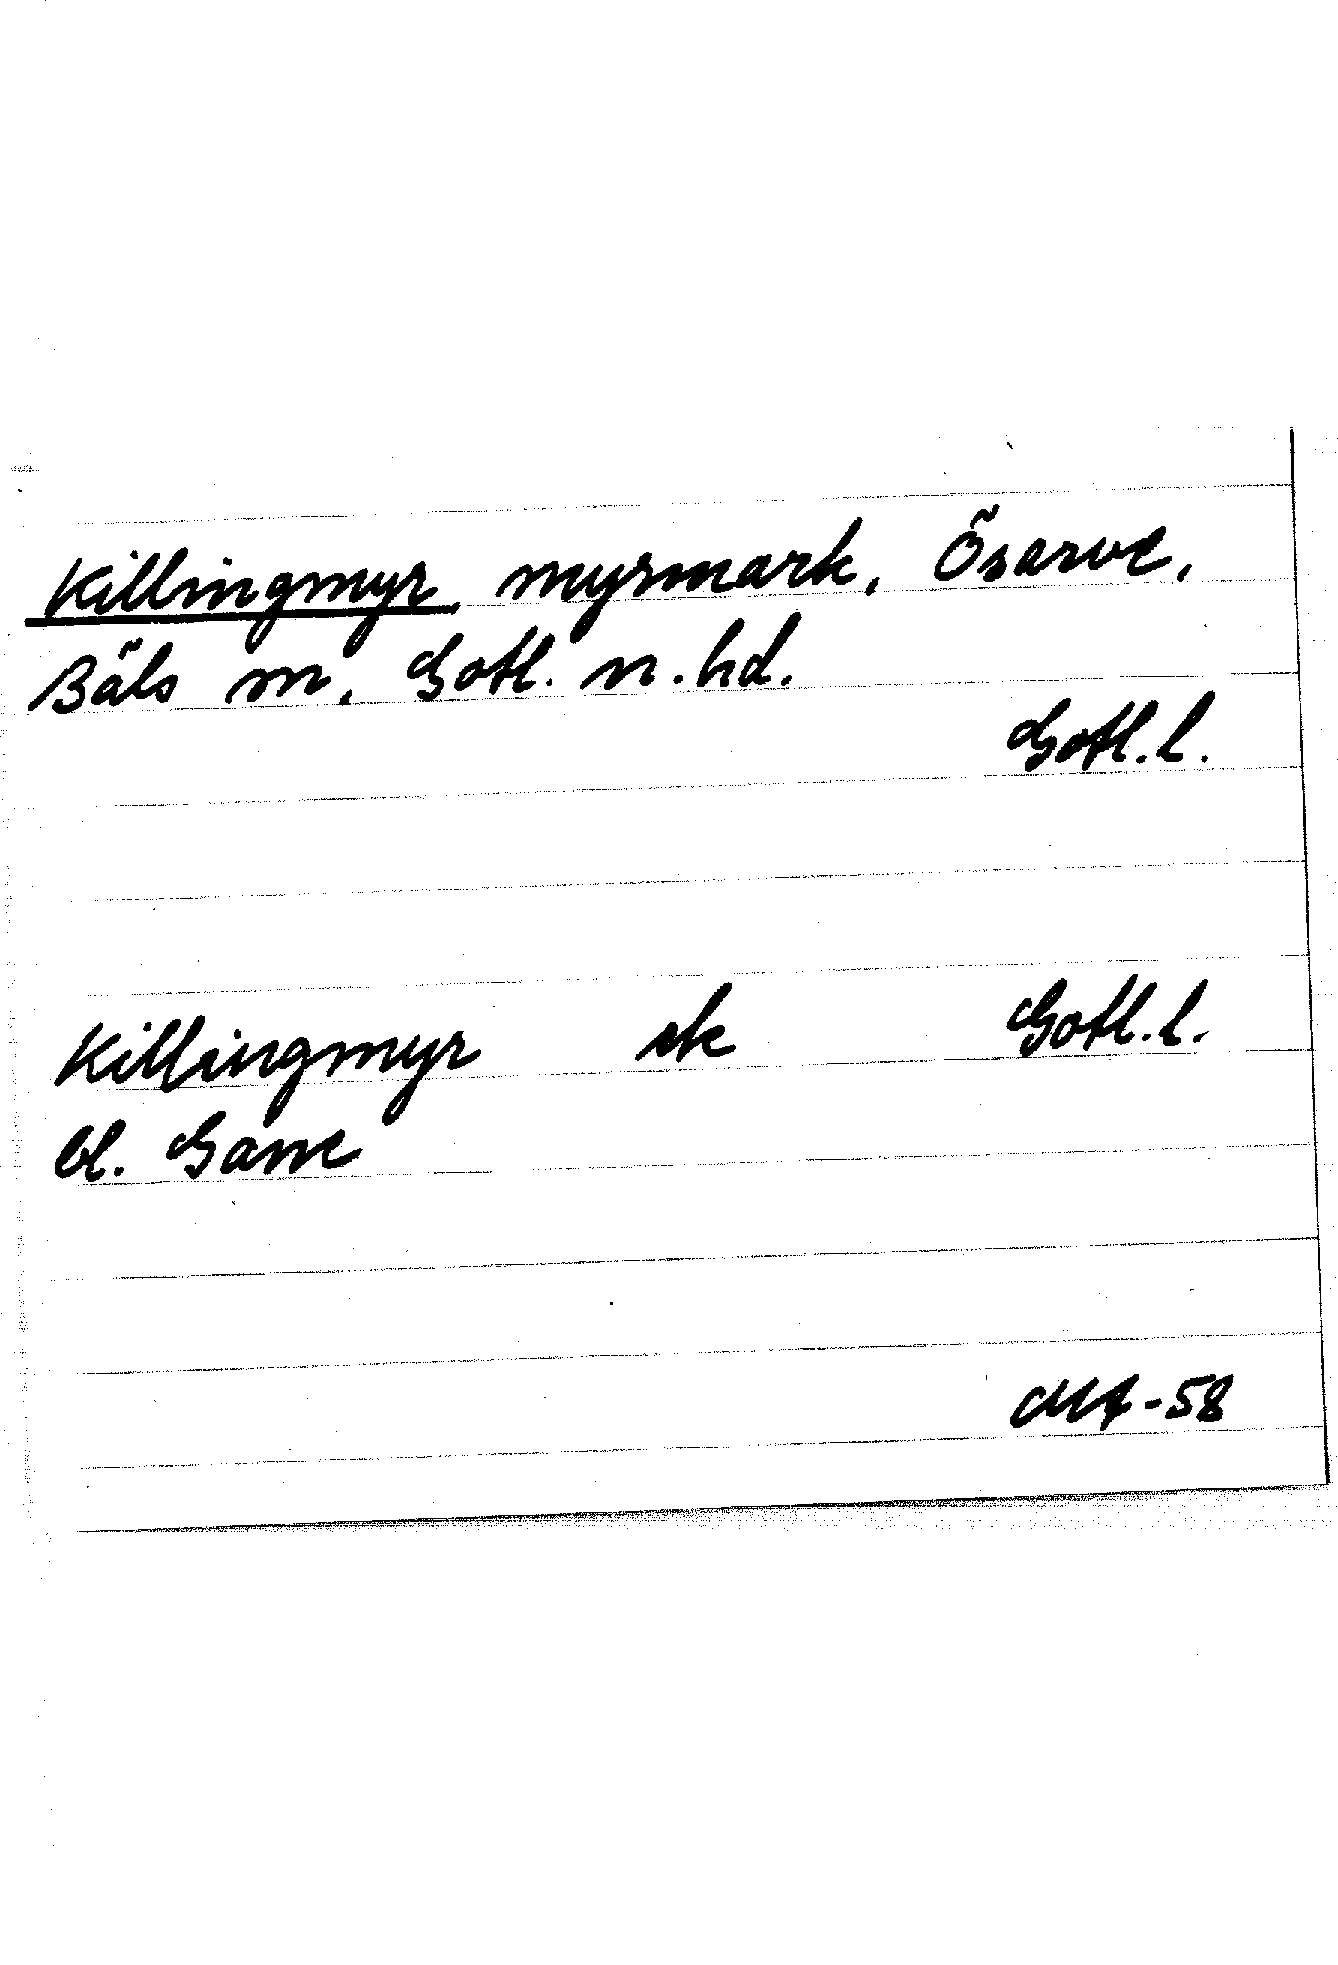 Killingmyr, myrmark, Ösarve,
Bäls sn, Gotl. n. hd.
Gotl. l.
Killingmyr ek Gotl. l.
bl. Gane
-58